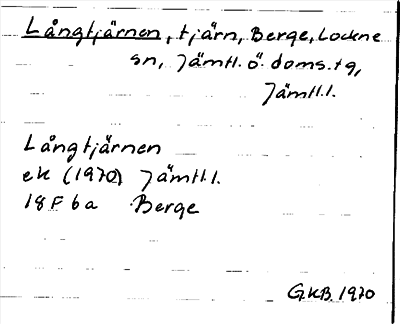 Långtjärnen, tjärn, Berge, Lockne
sn, Jämtl. ö. doms.tg,
Jämtl.l.
Långtjärnen
ek (1970) Jämtl.l.
18F 6a Berge
G.K.B. 1970